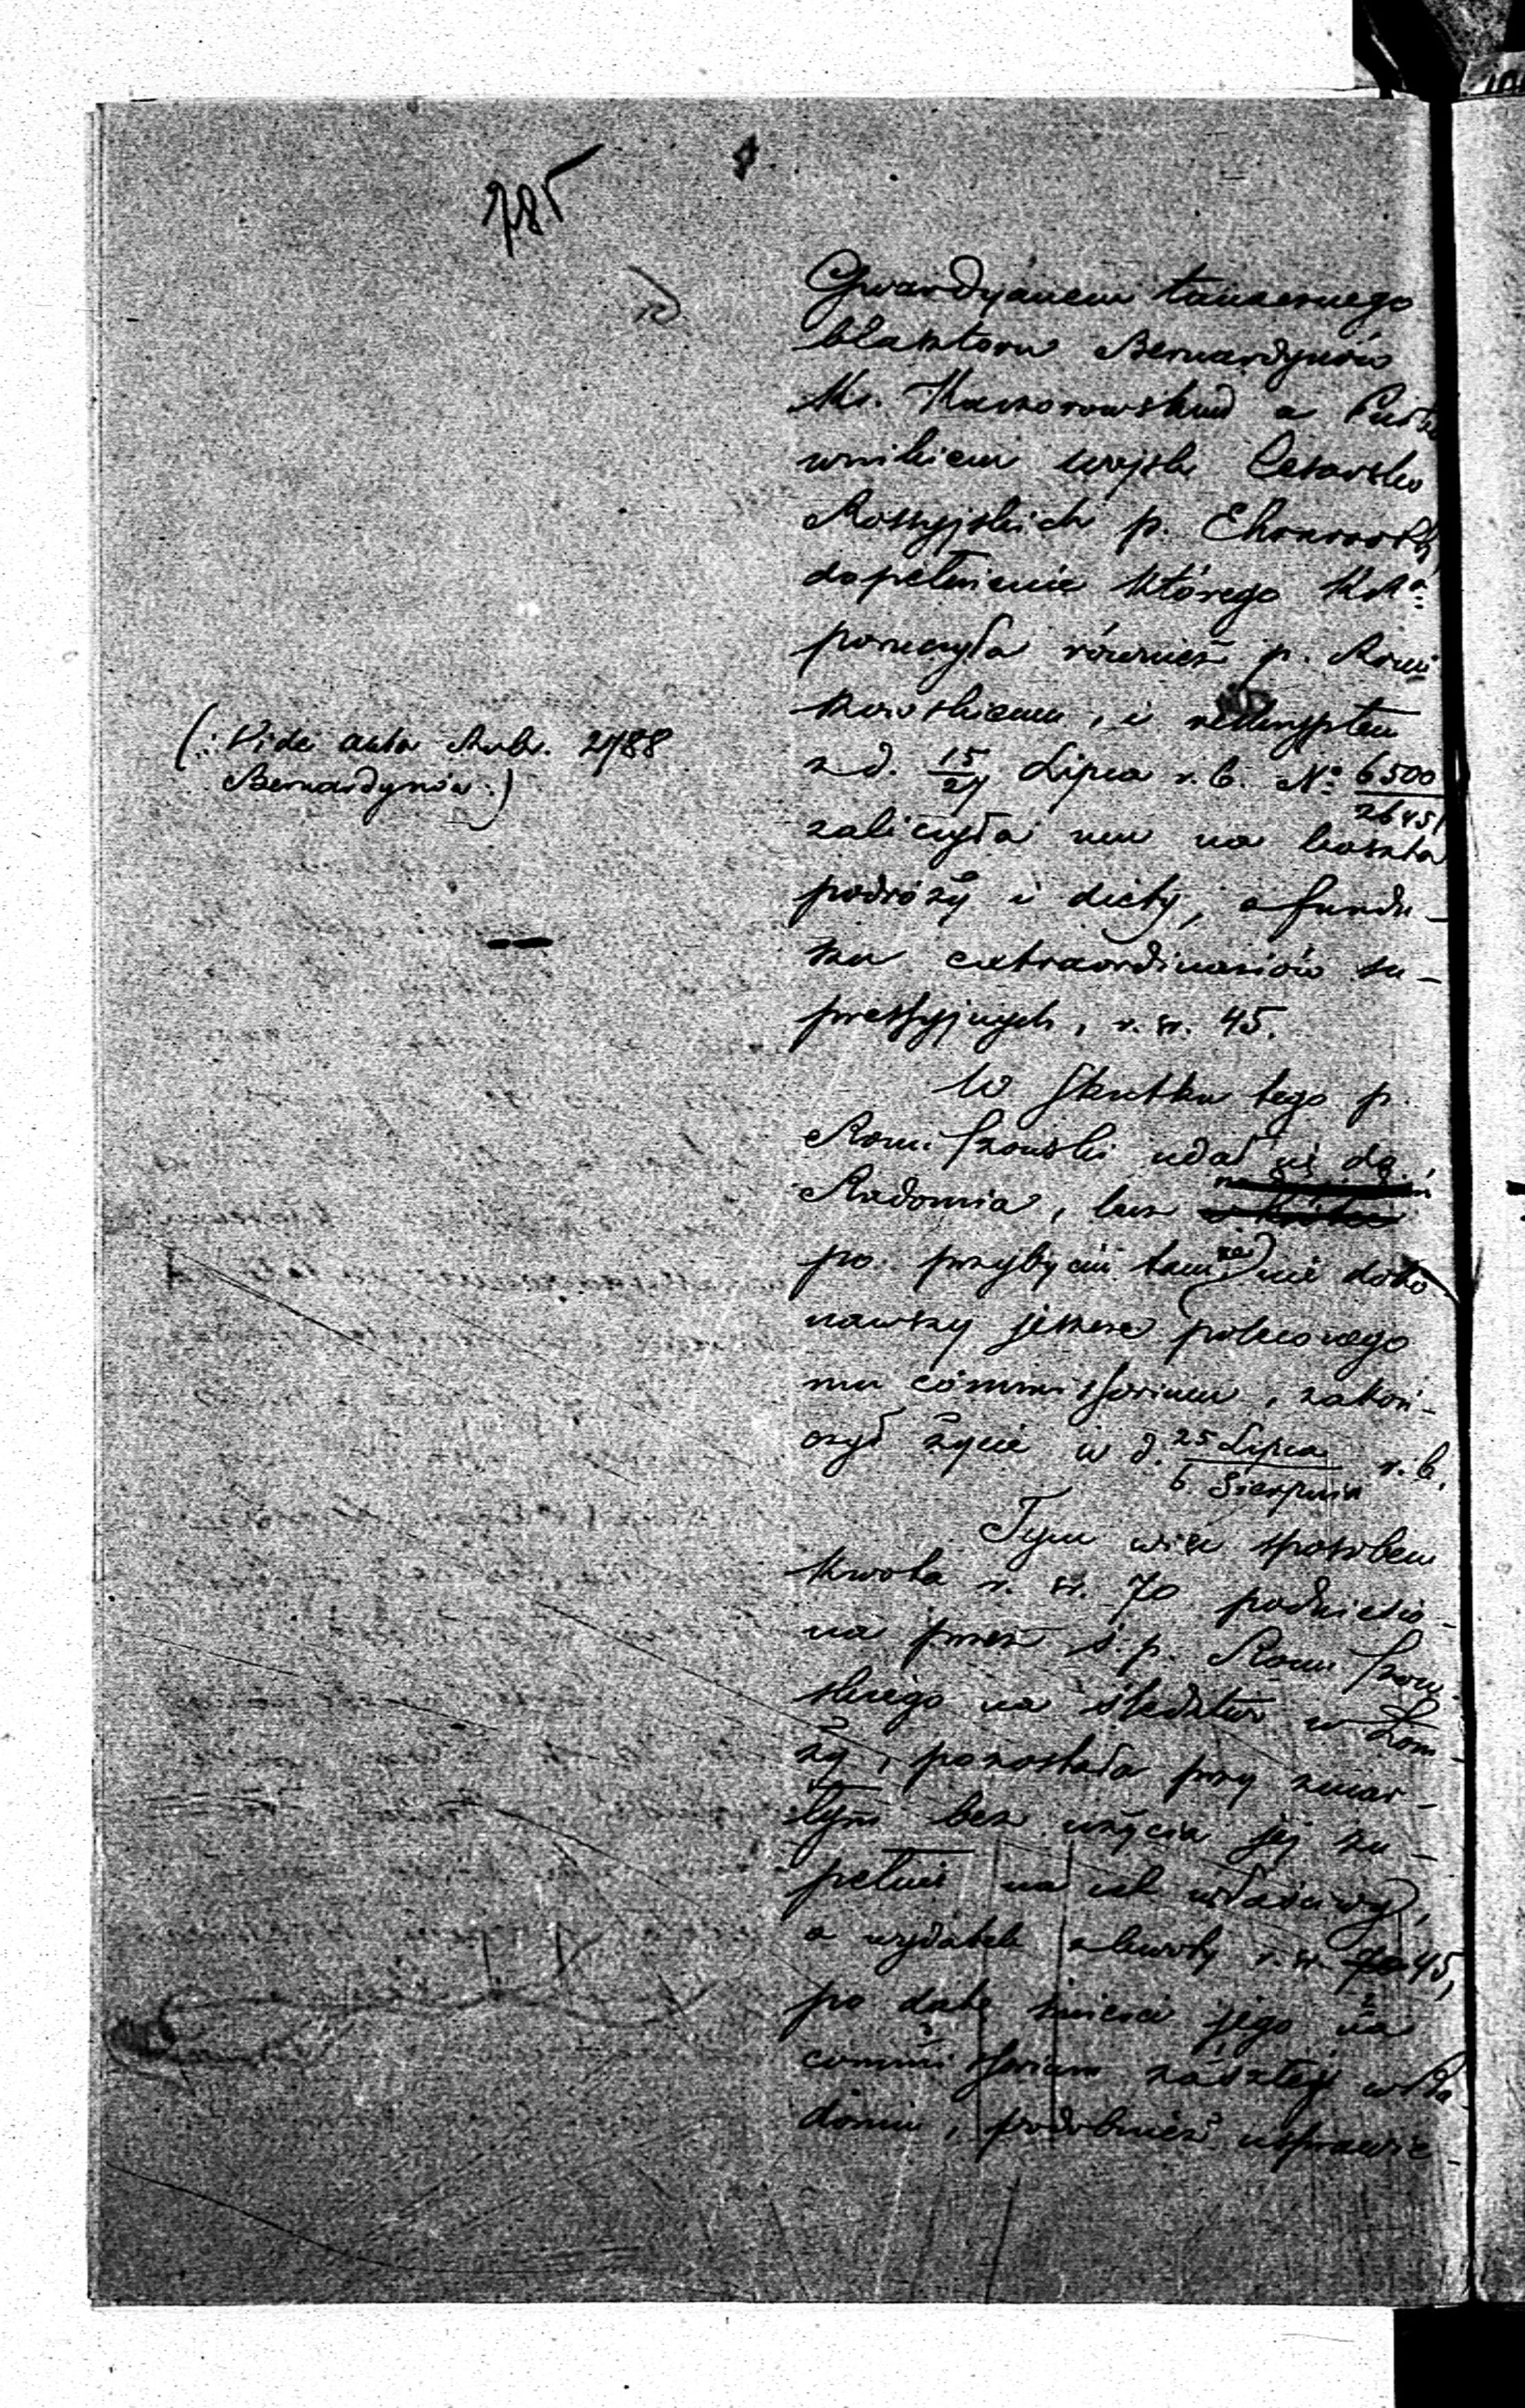 785
Gwardyanem tamecznego
klasztoru Bernardynów
Ks. Kaczorowskim a Puł
wnikiem wojsk Cesarsko
Rossyjskich p.
dopełnienie którego KR
poruczyła również p. Romi
szowskiemu, i reskryptem
z d. 15/27 Lipca r. b. No 6500/26451
zaliczyła mu na koszta
podróży i diety, z fundu-
szu extraordinariów su-
pressyjnych, r. sr. 45.
(: Vide akta Rubr. 2788
Bernardynów :)
W skutku tego p.
Romiszowski udał się do
Radomia, lecz
po przybyciu tamże nie doko
nawszy jeszcze poleconego
mu commissorium, zakoń-
czył życie w d. 25 Lipca/6 Sierpnia r. b.
Tym więc sposobem
kwota r. sr. 70 podniesio-
na przez ś. p. Romiszow-
skiego na śledztwo w Łom-
ży, pozostała przy zmar-
łym bez użycia jej zu-
pełnie na cel właściwy,
a wydatek z kwoty r. sr. 70 45,
po datę śmierci jego na
commissorium zaszłej w Ra
domiu, podobnież usprawie-